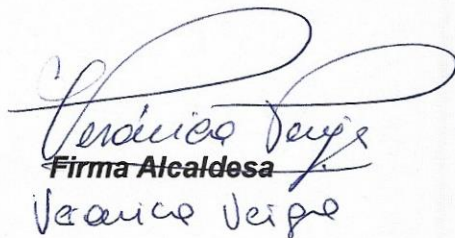 Verónica Veiga
Firma Alcaldesa
Veronica Veiga